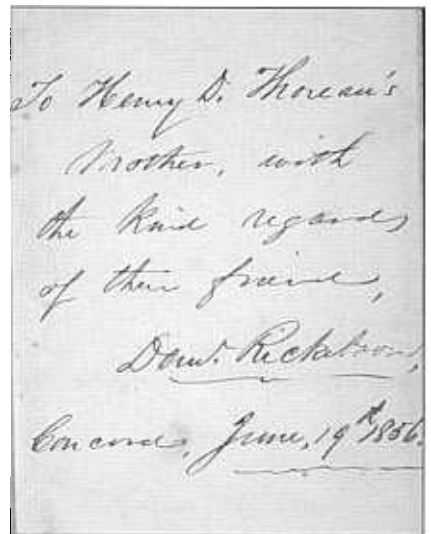 To Henry D. Thoreau's
Mother, with
the kind regards
of their friend,
Danl. Ricketson,
Concord, June, 19th 1856.